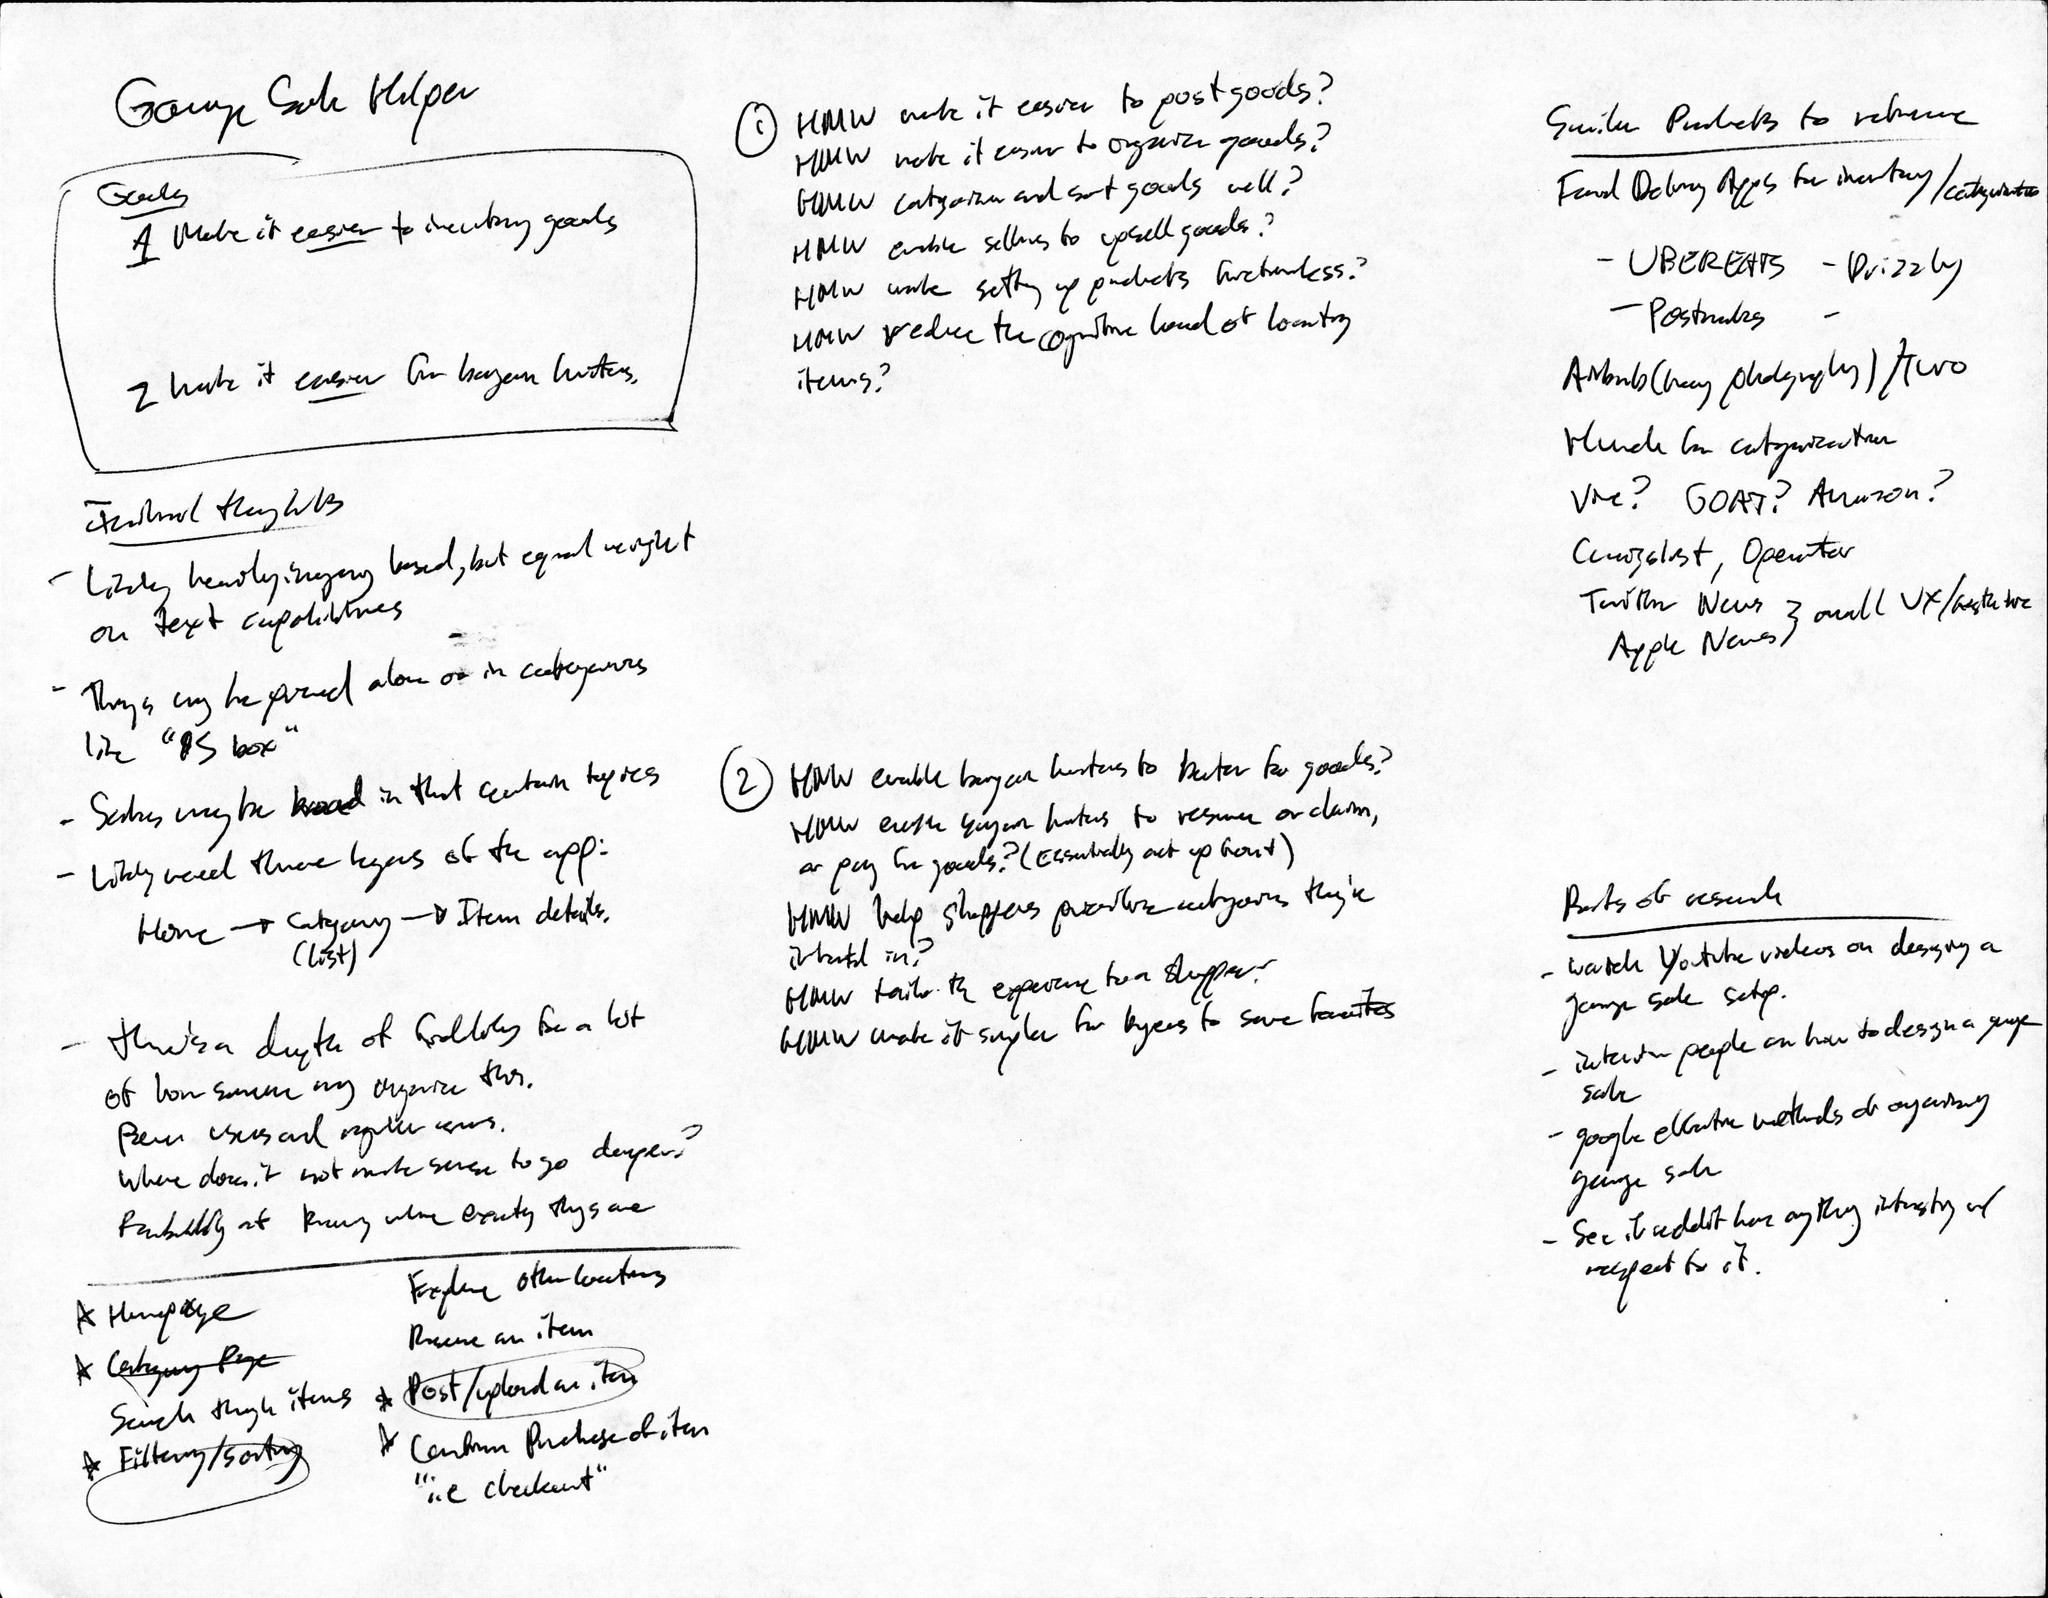 Garage Sale Helper
Goals
1 Make it easier to inventory goods
2 make it easier for bargain hunters.
Initial thoughts
- Likely heavily imagery based, but equal weight
on text capabilities
- Things may be priced alone or in categories
like "$ box"
- Sales may be broad in that certain topics
- Likely need three layers of the app:
Home → Category → Item details.
(list)
- there's a depth of for a lot
of how someone may organize this.
Power users and regular users.
Where does it not make sense to go deeper?
Probably at knowing where exactly things are
Homepage
Category Page
Search through items
Filtering/sorting
Explore other locations
Reserve an item
Post/upload an item
Confirm Purchase of item
"i.e checkout"
1 HMW make it easier to post goods?
HMW make it easier to organize goods?
HMW categorize and sort goods well?
HMW enable sellers to upsell goods?
HMW make setting up products frictionless?
HMW reduce the cognitive load of locating
items?
2 HMW enable bargain hunters to barter for goods?
HMW enable bargain hunters to reserve or claim,
or pay for goods? (Essentially act up front)
HMW help shoppers prioritize categories they're
interested in?
HMW tailor the experience to a shopper?
HMW make it simpler for buyers to save favorites
Similar Products to reference
Food Delivery Apps for inventory/categorization
- UBEREATS - Drizzly
- Postmates -
Airbnb (heavy photography) / Turo
for categorization
GOAT? Amazon?
Craigslist, Operator
Twitter News } overall UX/aesthetic
Apple News
Parts of research
- watch Youtube videos on designing a
garage sale setup.
- interview people on how to design a garage
sale
- google effective methods of organizing
garage sale
- See if reddit has anything interesting w/
respect to it.